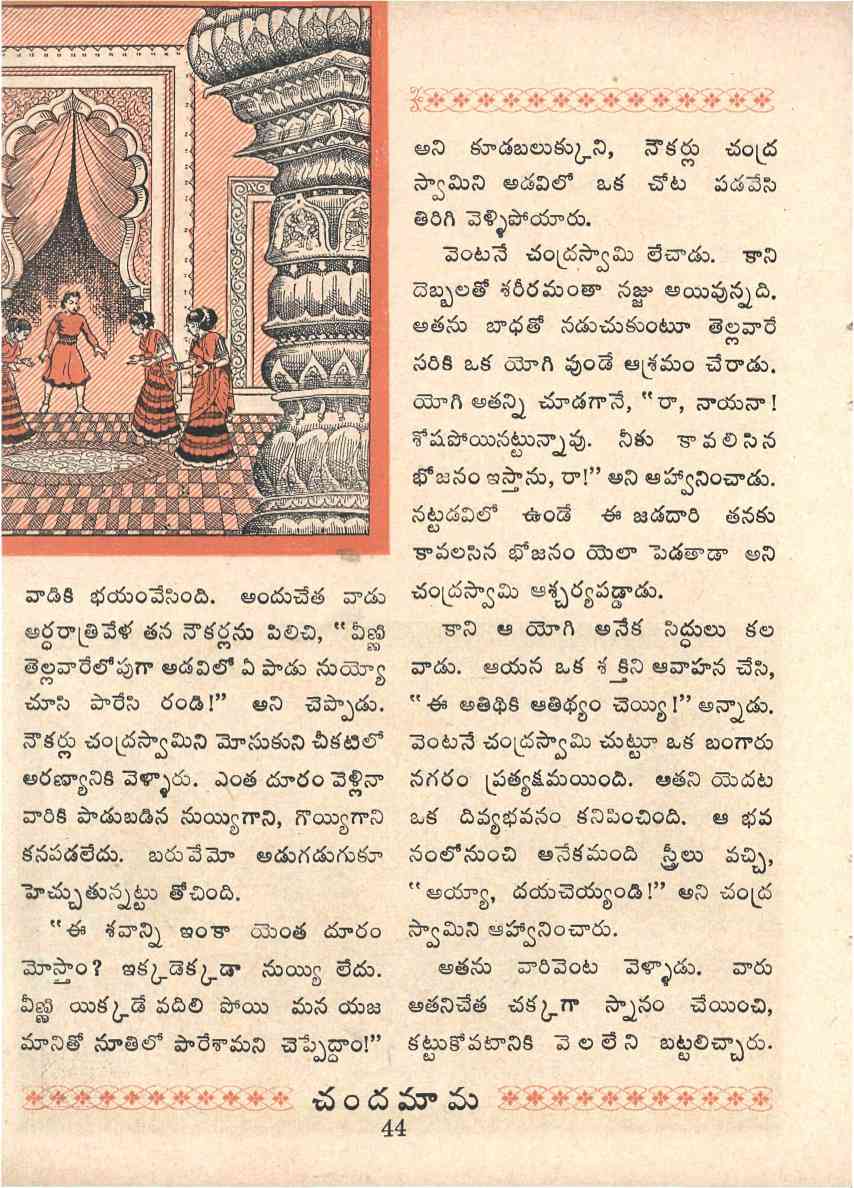 వాడికి భయంవేసింది. అందుచేత వాడు
అర్ధరాత్రివేళ తన నౌకర్లను పిలిచి, “వీణ్ణి
తెల్లవారేలోపుగా అడవిలో ఏ పాడు నుయ్యో
చూసి పారేసి రండి!” అని చెప్పాడు.
నౌకర్లు చంద్రస్వామిని మోసుకుని చీకటిలో
అరణ్యానికి వెళ్ళారు. ఎంత దూరం వెళ్లినా
వారికి పాడుబడిన నుయ్యిగాని, గొయ్యిగాని
కనపడలేదు. బరువేమో అడుగడుగుకూ
హెచ్చుతున్నట్టు తోచింది.
“ఈ శవాన్ని ఇంకా యెంత దూరం
మోస్తాం? ఇక్కడెక్కడా నుయ్యి లేదు.
వీణ్ణి యిక్కడే వదిలి పోయి మన యజ
మానితో నూతిలో పారేశామని చెప్పేద్దాం!”
అని కూడబలుక్కుని, నౌకర్లు చంద్ర
స్వామిని అడవిలో ఒక చోట పడవేసి
తిరిగి వెళ్ళిపోయారు.
వెంటనే చంద్రస్వామి లేచాడు. కాని
దెబ్బలతో శరీరమంతా నజ్జు అయివున్నది.
అతను బాధతో నడుచుకుంటూ తెల్లవారే
సరికి ఒక యోగి వుండే ఆశ్రమం చేరాడు.
యోగి అతన్ని చూడగానే, “రా, నాయనా!
శోషపోయినట్టున్నావు. నీకు కావలిసిన
భోజనం ఇస్తాను, రా!” అని ఆహ్వానించాడు.
నట్టడవిలో ఉండే ఈ జడదారి తనకు
కావలసిన భోజనం యెలా పెడతాడా అని
చంద్రస్వామి ఆశ్చర్యపడ్డాడు.
కాని ఆ యోగి అనేక సిద్ధులు కల
వాడు. ఆయన ఒక శక్తిని ఆవాహన చేసి,
“ఈ అతిథికి ఆతిథ్యం చెయ్యి!” అన్నాడు.
వెంటనే చంద్రస్వామి చుట్టూ ఒక బంగారు
నగరం ప్రత్యక్షమయింది. అతని యెదట
ఒక దివ్యభవనం కనిపించింది. ఆ భవ
నంలోనుంచి అనేకమంది స్త్రీలు వచ్చి,
“అయ్యా, దయచెయ్యండి!” అని చంద్ర
స్వామిని ఆహ్వానించారు.
అతను వారివెంట వెళ్ళాడు. వారు
అతనిచేత చక్కగా స్నానం చేయించి,
కట్టుకోవటానికి వెలలేని బట్టలిచ్చారు.
చందమామ
44